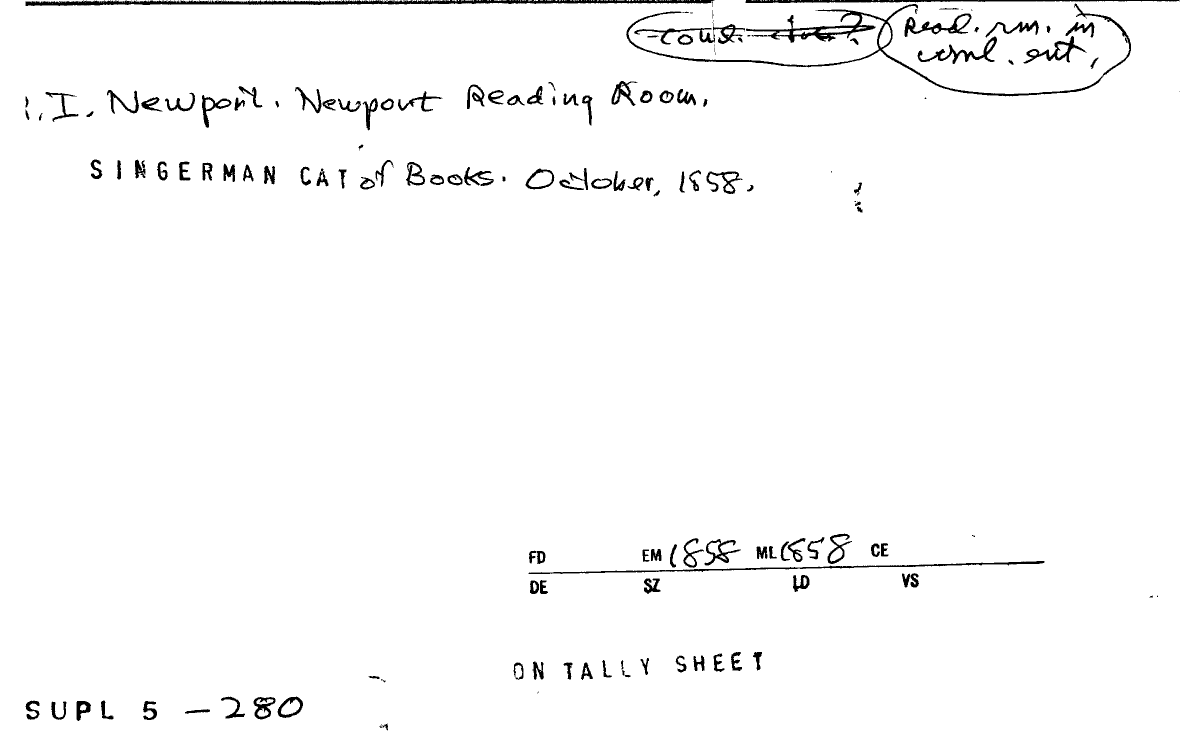 Read. rm. in
coml. ent.
R.I. Newport. Newport Reading Room.
SINGERMAN CAT of Books. October, 1858.
FD EM 1858 ML 1858 CE
DE SZ LD VS
ON TALLY SHEET
SUPL 5 -280